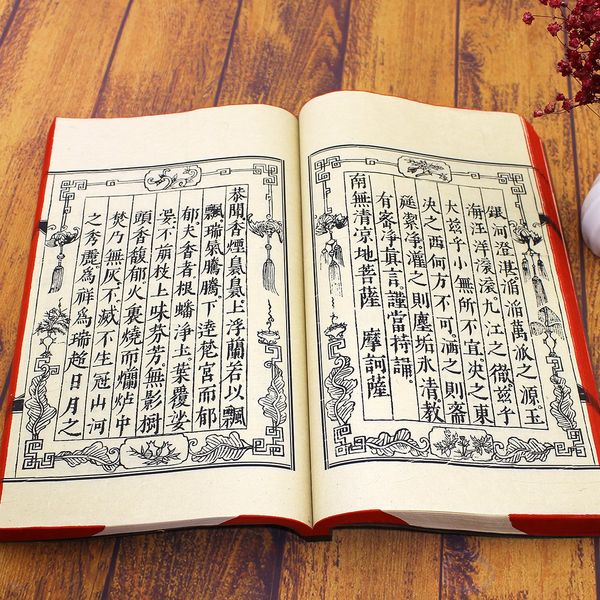 銀河澄湛滔滔萬派之源。玉
海汪洋滾滾。九江之徹。茲乎
大茲乎小無所不宜。決之東
決之西何方不可。洒之則齋
筵潔淨。灌之則塵垢氷清。教
有齋淨真言。謹當持誦。
南無清凉地菩薩 摩訶薩
恭聞香煙裊裊。上浮蘭若以飄
飄瑞氣騰騰。下逹梵宮而郁
郁夫香者。根蟠淨土。葉覆娑
婆不萠枝上味芬芳。無影樹
頭香馥郁。火裏燒而爛。炉中
焚乃無灰。不滅不生冠山河
之秀麗。爲祥爲瑞超日月之